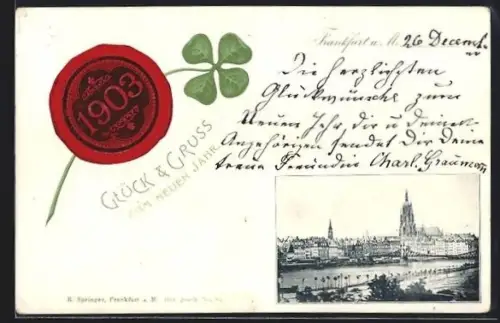 1903
GLÜCK & GRUSS
ZUM NEUEN JAHR
Frankfurt a. M. 26 Decemb.
Die herzlichsten
Glückwünsche zum
Neuen Jahr, dir u deinen
Angehörigen sendet Dir Deine
treue Freundin Charl. Graumann
R. Springer, Frankfurt a. M